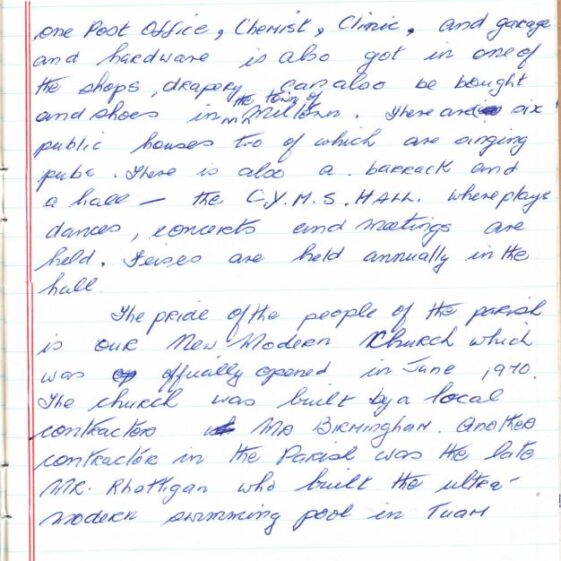 one Post Office, Chemist, Clinic, and garage
and hardware is also got in one of
the shops, drapery can also be bought
and shoes in the town of Milltown. There are six
public houses two of which are singing
pubs. There is also a barrack and
a hall — the C.Y.M.S. HALL. where plays
dances, concerts and meetings are
held. Feises are held annually in the
hall.
The pride of the people of the parish
is our New Modern Church which
was offically opened in June 1970.
The church was built by a local
contractor Mr Birmingham. Another
contractor in the Parish was the late
MR. Rhattigan who built the ultra-
modern swimming pool in Tuam